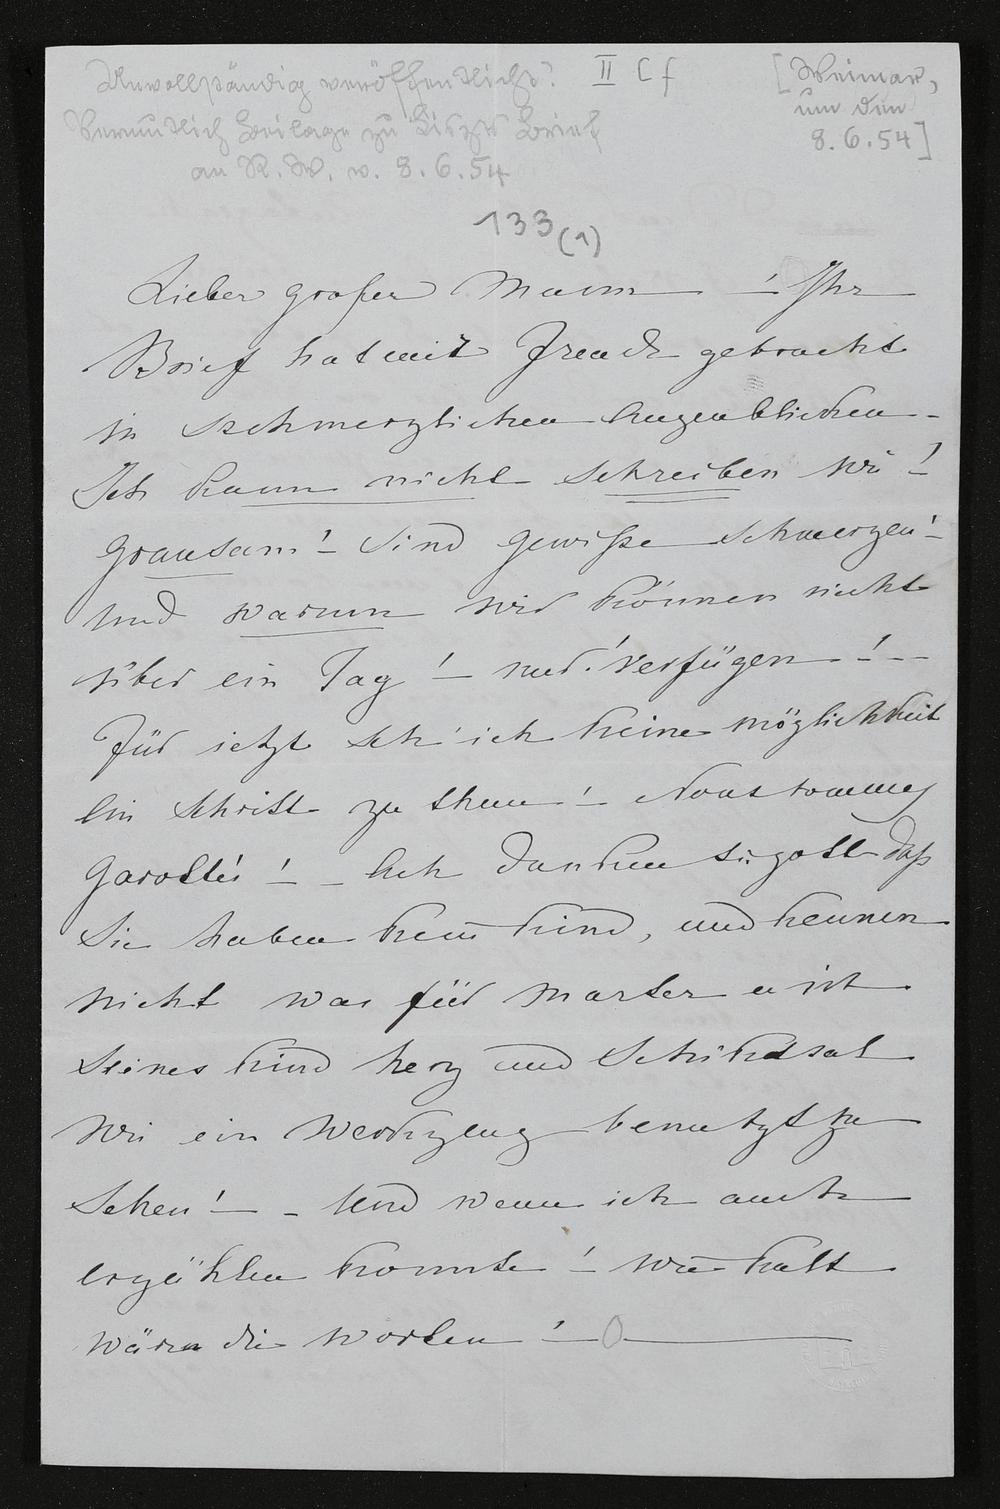 Unvollständig veröffentlicht!
II C f
[Weimar,
um den
8.6.54]
Vermutlich Beilage zu Liszts Brief
an R. W. v. 8.6.54
133(1)
Lieber großer Mann – ! Ihr
Brief hat mir Freude gebracht
in schmerzlichen Augenblicken –
Ich kann nicht schreiben wie !
grausam ! – sind gewiße Schmerzen ! –
und warum wir können nicht
über ein Tag ! – nur ! verfügen – ! –
Für jetzt seh' ich keine möglichkeit
ein Schritt zu thun ! – Nous sommes
garottés ! – – Ach danken sie gott daß
Sie haben kein Kind, und kennen
nicht was für Marter es ist
seines kind herz und Schiksal
wie ein Werkzeug benutzt zu
sehen ! – – Und wenn ich auch
erzählen konnte ! – wie kalt
wären die worten ! –